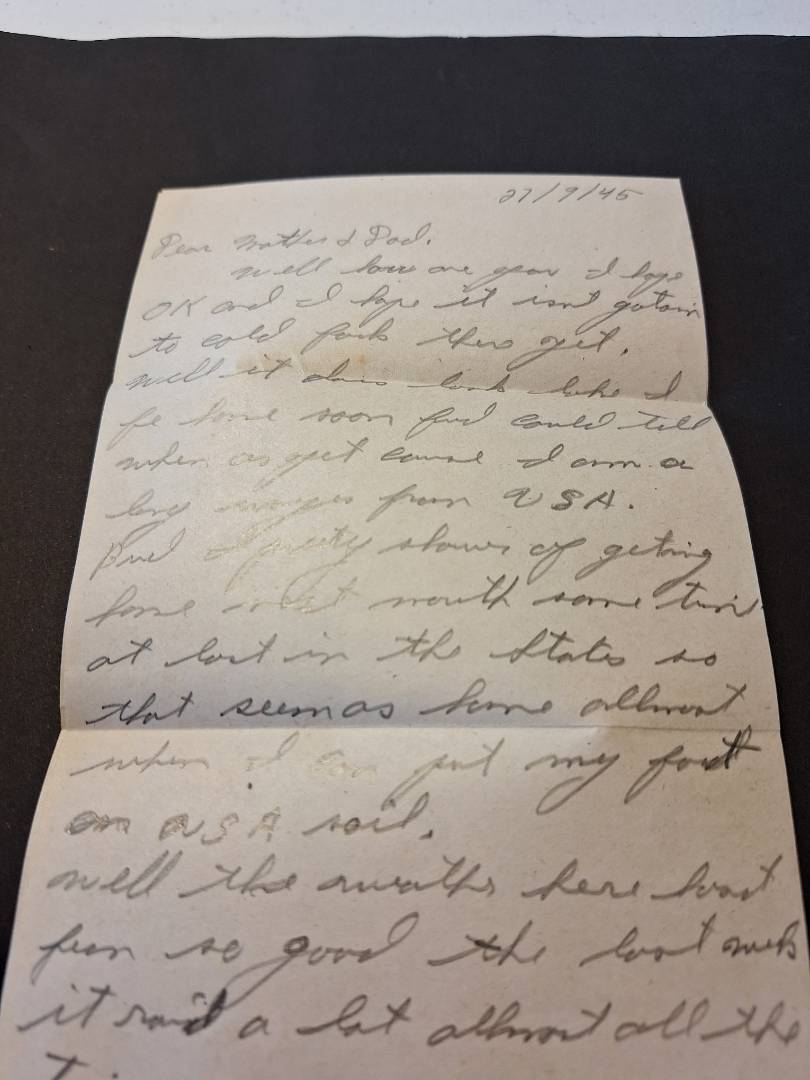 27/9/45
Dear Mother & Dad.
Well how are you I hope
OK and I hope it isn't
to cold back there yet.
Well it dows look like I
be home soon but could tell
when as yet caurse I am a
long from USA.
But I prity of geting
home next month some time
at last in the States so
that seem as home allmost
when I can put my foot
on USA soil.
Well the here hast
been so good the last week
it raid a lot allmost all the